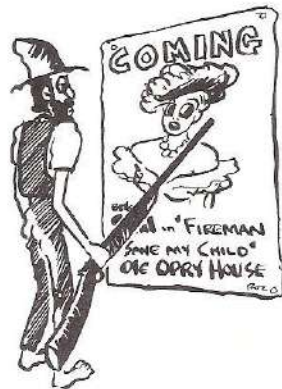 COMING
IN "FIREMAN
SAVE MY CHILD"
OLE OPRY HOUSE